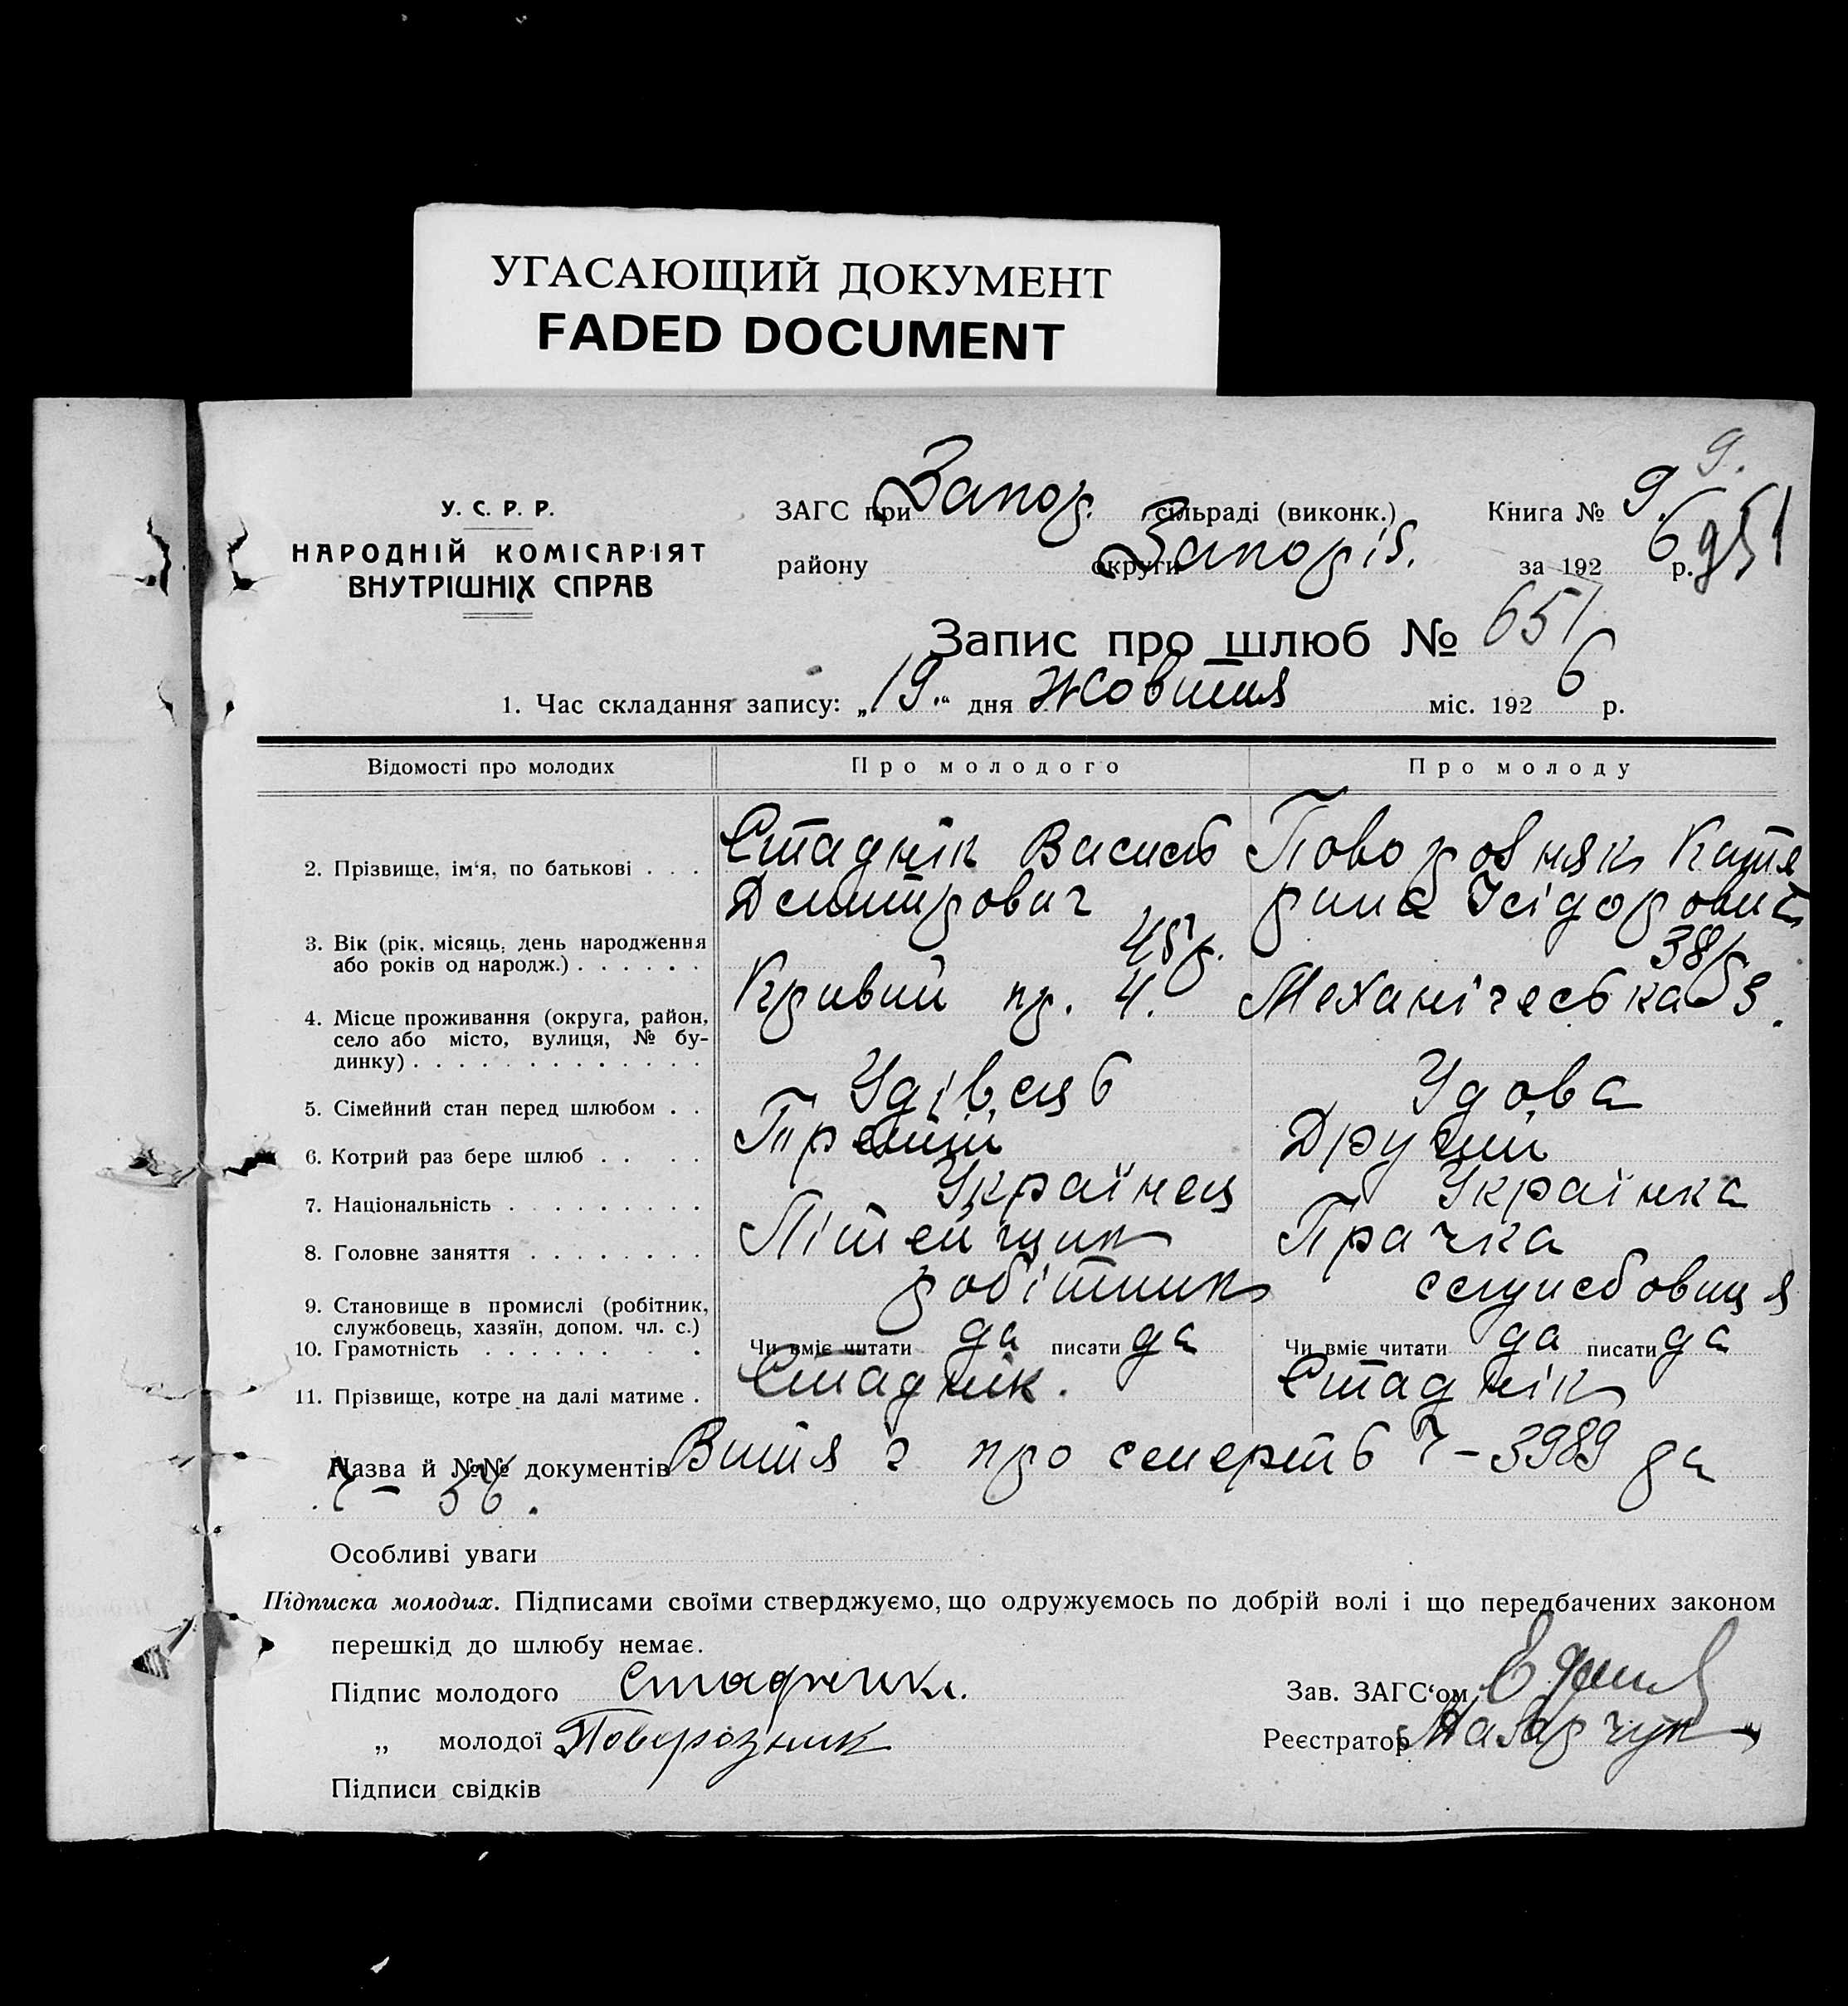 УГАСАЮЩИЙ ДОКУМЕНТ
FADED DOCUMENT
9.
У. С. Р. Р.
НАРОДНІЙ КОМІСАРІЯТ
ВНУТРІШНІХ СПРАВ
ЗАГС при Запор. сільраді (виконк.) Книга № 9.
району округи Запоріз. за 192 6 р. 951
Запис про шлюб № 651
1. Час складання запису: „19.“ дня Жовтня міс. 192 6 р.
Відомості про молодих Про молодого Про молоду
2. Прізвище, ім‘я, по батькові . . . Стаднік Василь Дмитрович Поворозняк Катерина Ісідоровна
3. Вік (рік, місяць, день народження
або років од народж.) . . . . . . 45 р. 38 р.
4. Місце проживання (округа, район,
село або місто, вулиця, № бу-
динку) . . . . . . . . . . . . . Кривий пр. 4. Механічеська 53.
5. Сімейний стан перед шлюбом . . Удівець Удова
6. Котрий раз бере шлюб . . . . Третий Другий
7. Національність . . . . . . . . . Українец Українка
8. Головне заняття . . . . . . . . Літейщик Прачка
9. Становище в промислі (робітник,
службовець, хазяїн, допом. чл. с.) робітник служебовиця
10. Грамотність . . . . . . . . Чи вміє читати да писати да Чи вміє читати да писати да
11. Прізвище, котре на далі матиме . Стаднік. Стаднік
Назва й №№ документів Витяг про смерть Ч-3989 да
Ч - 56.
Особливі уваги
Підписка молодих. Підписами своїми стверджуємо, що одружуємось по добрій волі і що передбачених законом
перешкід до шлюбу немає.
Підпис молодого Стадник. Зав. ЗАГС‘ом
„ молодої Поворозник Реєстратор Назарчук
Підписи свідків